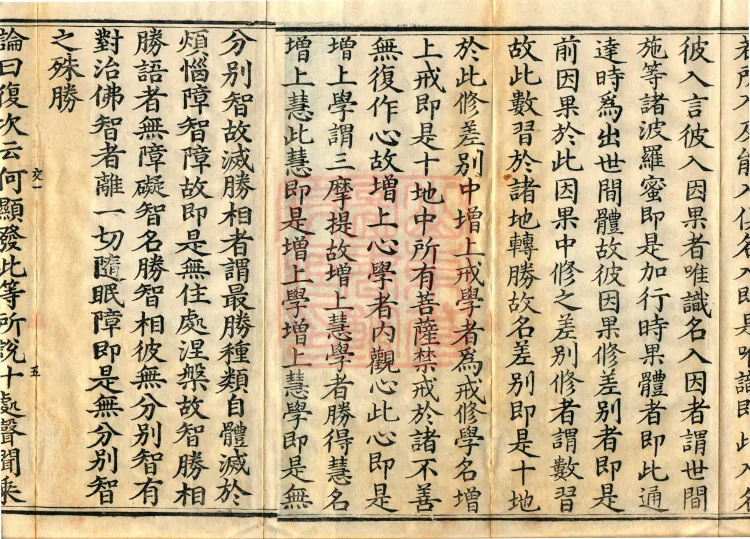 彼入言彼入因果者唯識名入因者謂世間
施等諸波羅蜜即是加行時果體者即此通
達時爲出世間體故彼因果修差別者即是
前因果於此因果中修之差別修者謂數習
故此數習於諸地轉勝故名差別即是十地
於此修差別中增上戒學者爲戒修學名增
上戒即是十地中所有菩薩禁戒於諸不善
無復作心故增上心學者內觀心此心即是
增上學謂三摩提故增上慧學者勝得慧名
增上慧此慧即是增上學增上慧學即是無
分別智故滅勝相者謂最勝種類自體滅於
煩惱障智障故即是無住處涅槃故智勝相
勝語者無障礙智名勝智相彼無分別智有
對治佛智者離一切隨眠障即是無分別智
之殊勝
論曰復次云何顯發此等所說十處聲聞乘
五